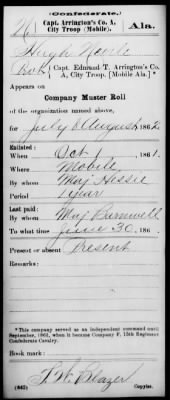 (Confederate.)
N Capt. Arrington's Co. A, Ala.
City Troop (Mobile).
Hugh Nevile
Pvt., Capt. Edmund T. Arrington's Co.
A, City Troop. (Mobile Ala.)*
Appears on
Company Muster Roll
of the organization named above,
for July & August, 1862
Enlisted:
When Oct 1, 1861.
Where Mobile
By whom Maj Hessee
Period 1 year
Last paid:
By whom Maj Burnwell
To what time June 30, 186 .
Present or absent Present
Remarks:
*This company served as an independent command until
September, 1862, when it became Company F, 15th Regiment
Confederate Cavalry.
Book mark:
(642) Copyist.